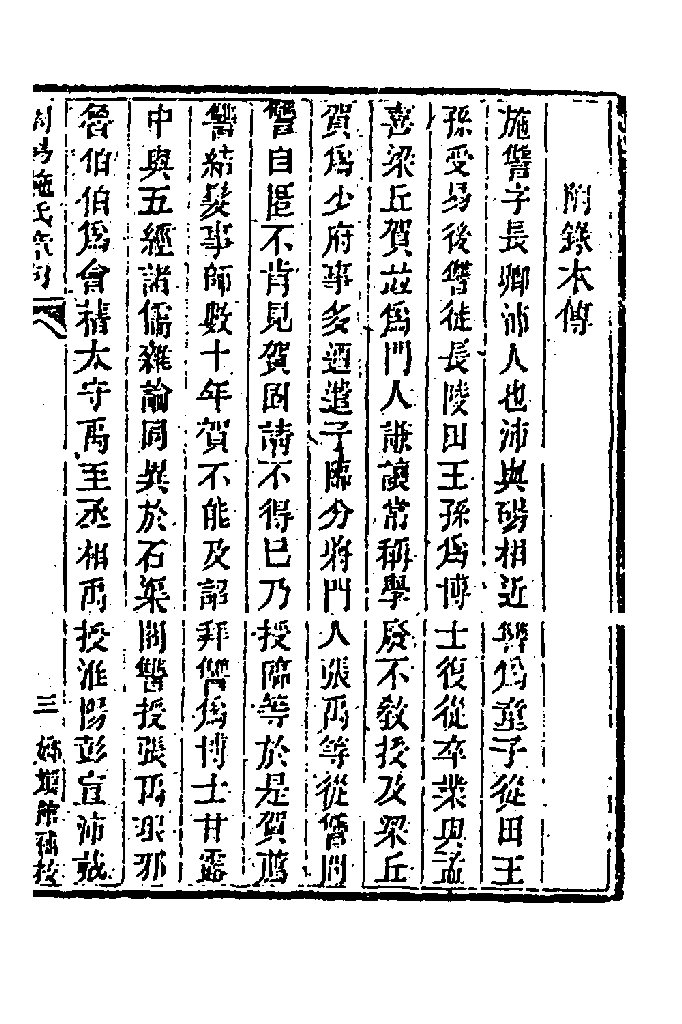 附錄本傳
施讐字長卿沛人也沛與碭相近讐爲童子從田王
孫受易後讐徙長陵田王孫爲博士復從卒業與孟
喜梁丘賀並爲門人謙讓常稱學廢不敎授及梁丘
賀爲少府事多迺遣子臨分將門人張禹等從讐問
讐自匿不肯見賀固請不得已乃授臨等於是賀薦
讐結髮事師數十年賀不能及詔拜讐爲博士甘露
中與五經諸儒雜論同異於石渠閣讐授張禹琅邪
魯伯伯爲會稽太守禹至丞相禹授淮陽彭宣沛戴
周易施氏章句
三